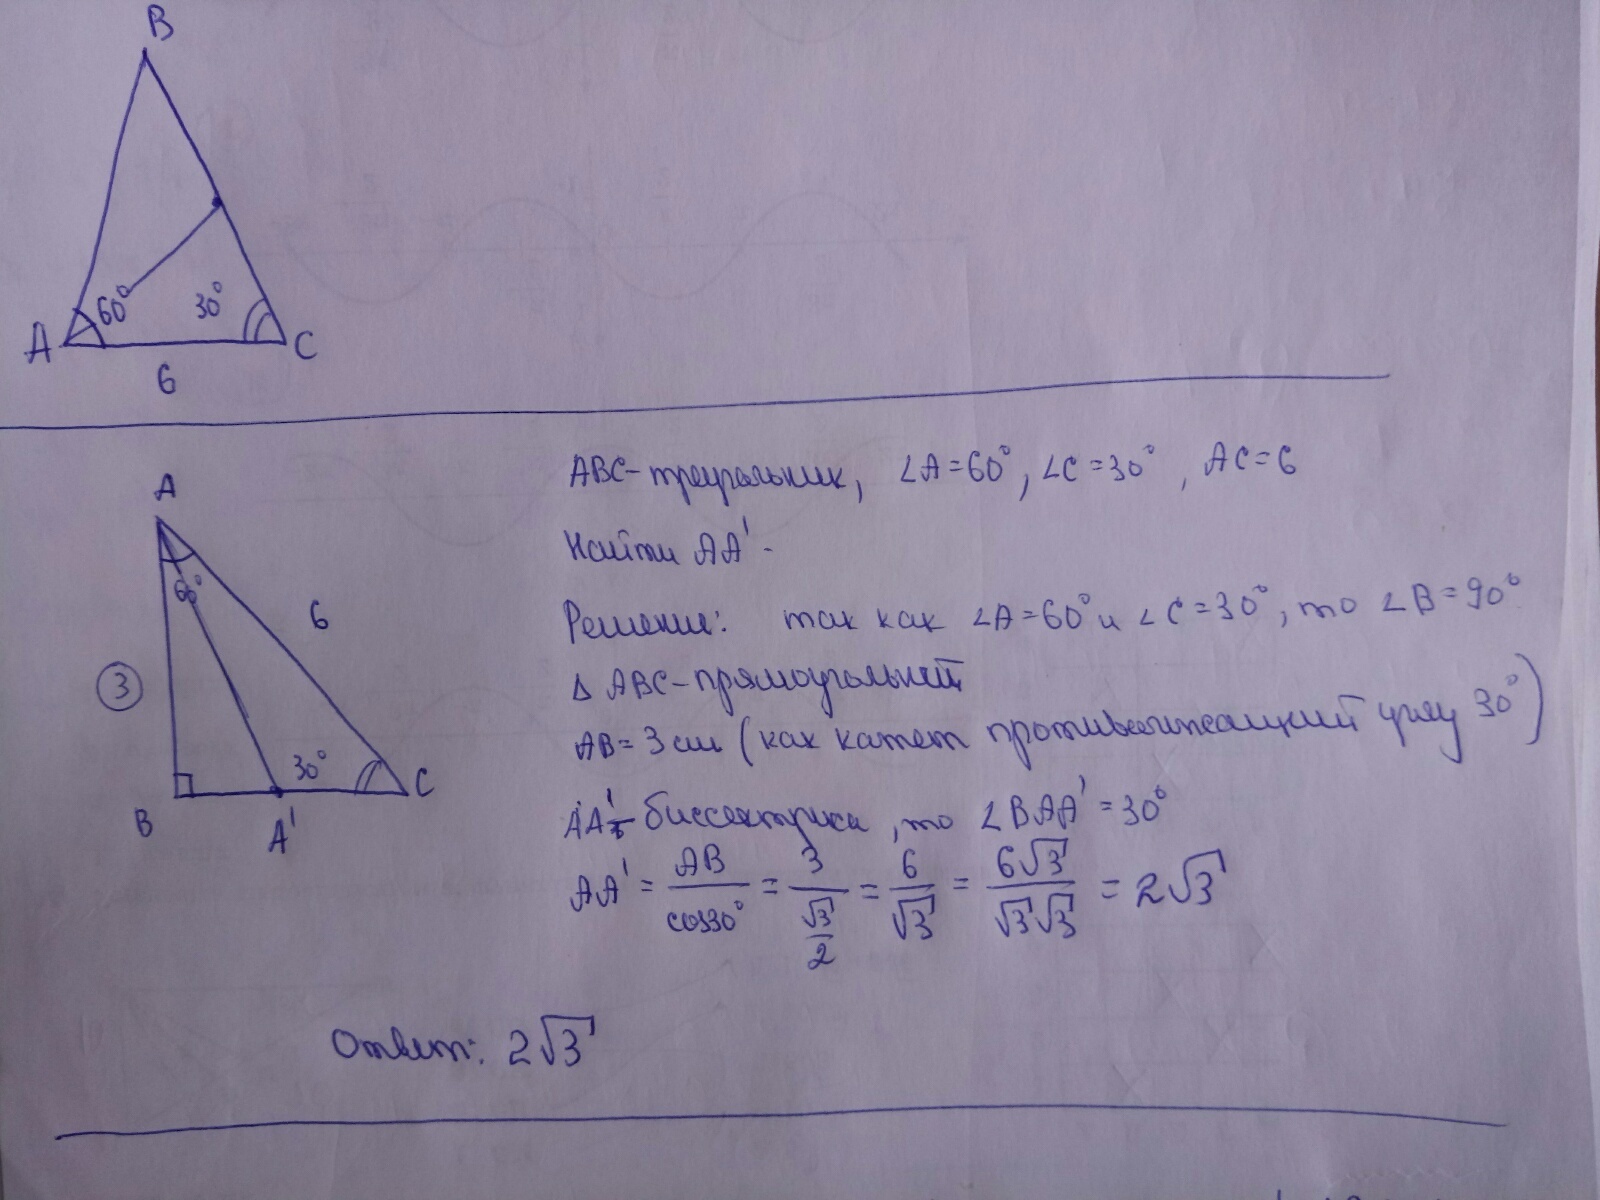 B
60° 30°
A C
6
A
ABC-треугольник, ∠A=60°, ∠C=30°, AC=6
Найти AA' -
60°
6
Решение: так как ∠A=60° и ∠C=30°, то ∠B=90°
3
Δ ABC-прямоугольный
AB=3см (как катет противолежащий углу 30°)
30°
C
B
A'
AA'- биссектриса, то ∠BAA'=30°
AA' = AB/cos30° = 3/(√3/2) = 6/√3 = 6√3/√3√3 = 2√3
Ответ: 2√3